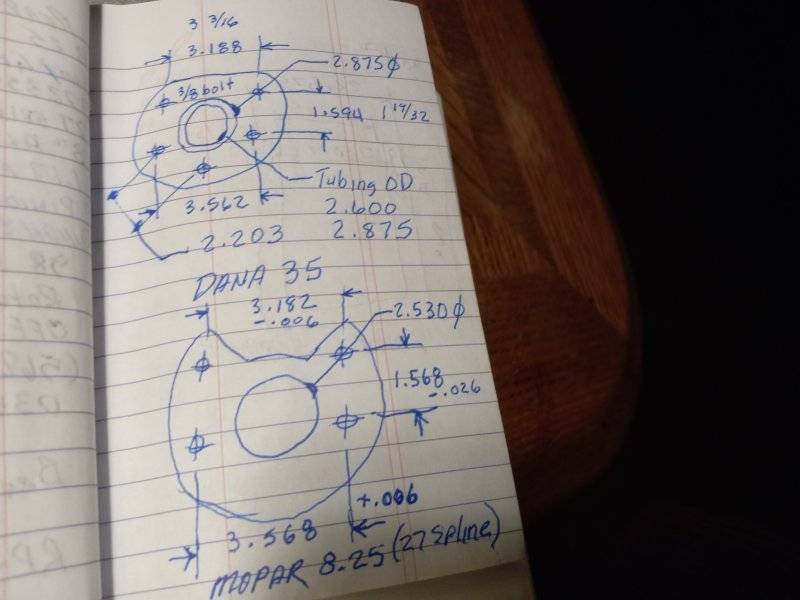 3 3/16
3.188
2.875Ø
3/8 bolt
1.594 1 19/32
Tubing OD
3.562 2.600
2.203 2.875
DANA 35
3.182
-.006
2.530Ø
1.568
-.026
+.006
3.568
MOPAR 8.25 (27 Spline)